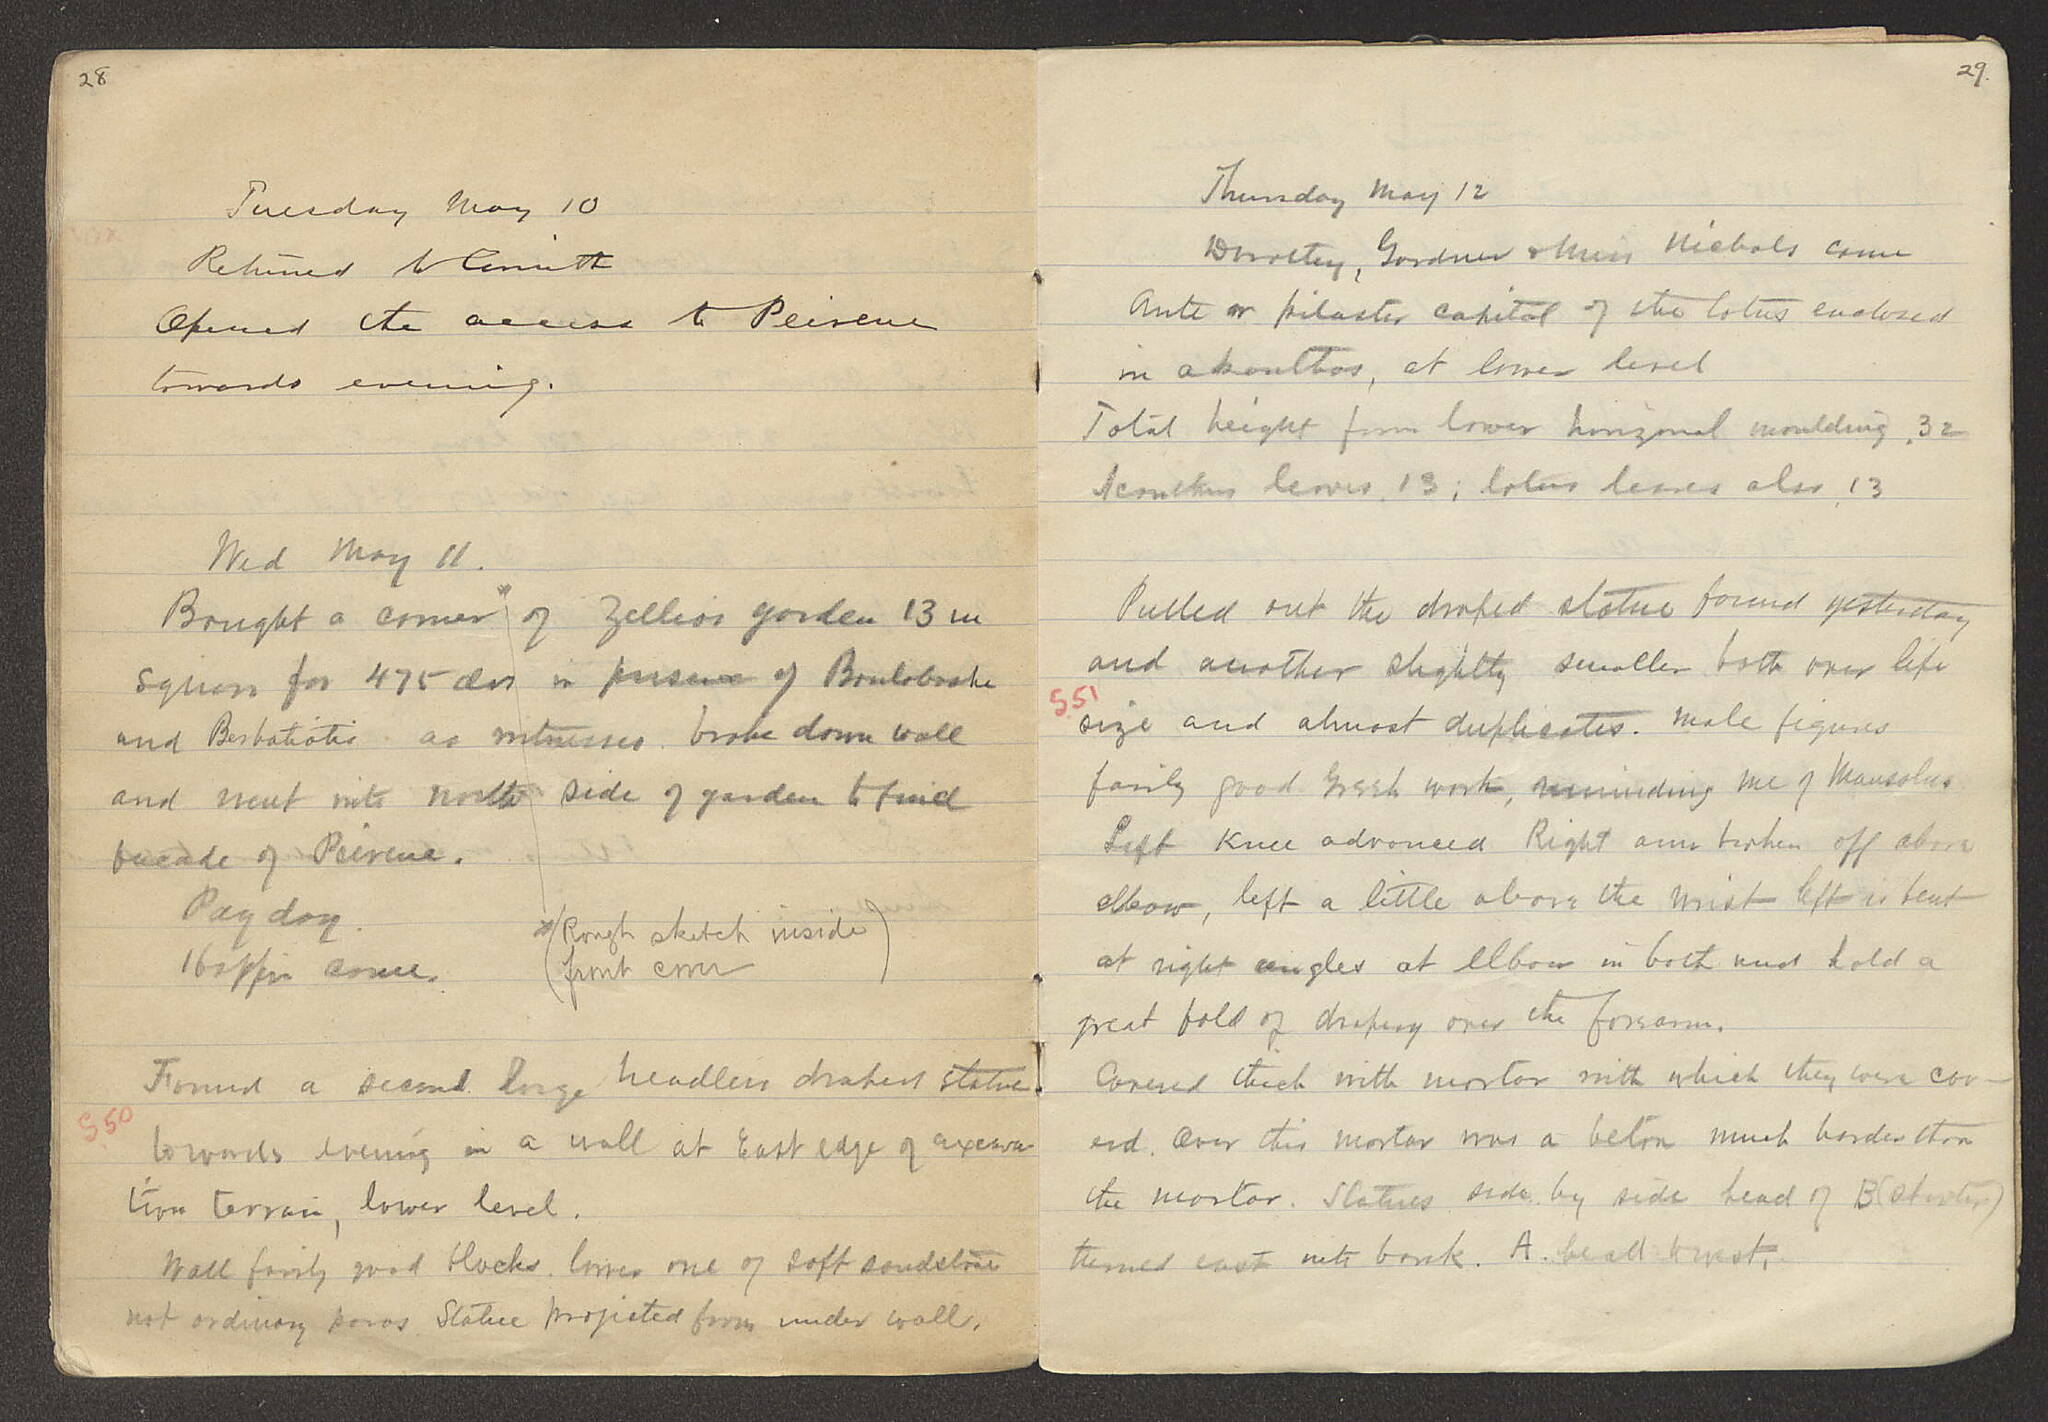 28
Tuesday May 10
Returned to Corinth
Opened the access to Peirene
towards evening.
Wed May 11.
Bought a corner * of Zellios garden 13 m
square for 475 drs in presence of
and as witnesses. broke down wall
and went into North side of garden to find
facade of Peirene.
Pay day.
come.
*(Rough sketch inside
front cover)
Found a second large headless draped statue
S 50
towards evening in a wall at East edge of excava-
tion terrain, lower level.
Wall fairly good blocks. lower one of soft sandstone
not ordinary poros Statue projected from under wall.
29.
Thursday May 12
Dorothy, Gardner & Miss Nichols come
Ante or pilaster capital of the lotus enclosed
in akanthos, at lower level
Total height from lower horizonal moulding .32
Acanthus leaves .13; lotus leaves also .13
Pulled out the draped statue found yesterday
and another slightly smaller both over life
S 51
size and almost duplicates. Male figures
fairly good Greek work, reminding me of Mausolus
Left knee advanced Right arm broken off above
elbow, left a little above the wrist left is bent
at right angles at elbow in both and hold a
great fold of drapery over the forearm.
Covered thick with mortar with which they were cov-
erd. Over this mortar was a beton much harder than
the mortar. Statues side by side head of B (shorter)
turned east into bank. A. head to west.